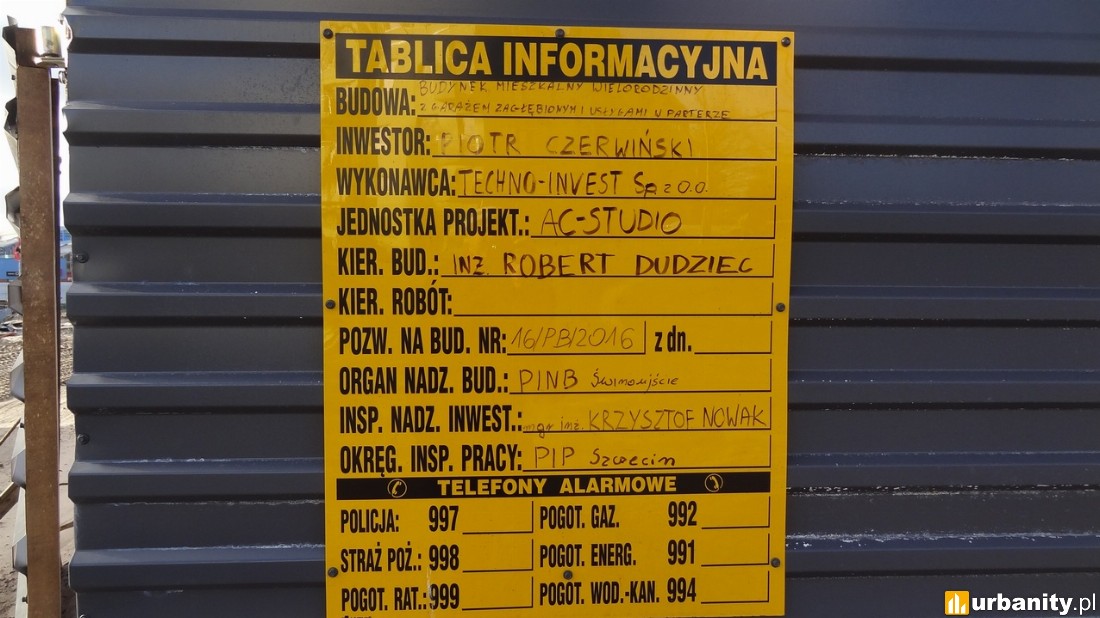 TABLICA INFORMACYJNA
BUDOWA: BUDYNEK MIESZKALNY WIELORODZINNY
Z GARAŻEM ZAGŁĘBIONYM I USŁUGAMI W PARTERZE
INWESTOR: PIOTR CZERWIŃSKI
WYKONAWCA: TECHNO-INVEST Sp z o.o.
JEDNOSTKA PROJEKT.: AC-STUDIO
KIER. BUD.: INŻ. ROBERT DUDZIEC
KIER. ROBÓT:
POZW. NA BUD. NR: 16/PB/2016 z dn.
ORGAN NADZ. BUD.: PINB Świnoujście
INSP. NADZ. INWEST.: mgr inż. KRZYSZTOF NOWAK
OKRĘG. INSP. PRACY: PIP Szczecin
TELEFONY ALARMOWE
POLICJA: 997 POGOT. GAZ. 992
STRAŻ POŻ.: 998 POGOT. ENERG. 991
POGOT. RAT.: 999 POGOT. WOD.-KAN. 994
urbanity.pl